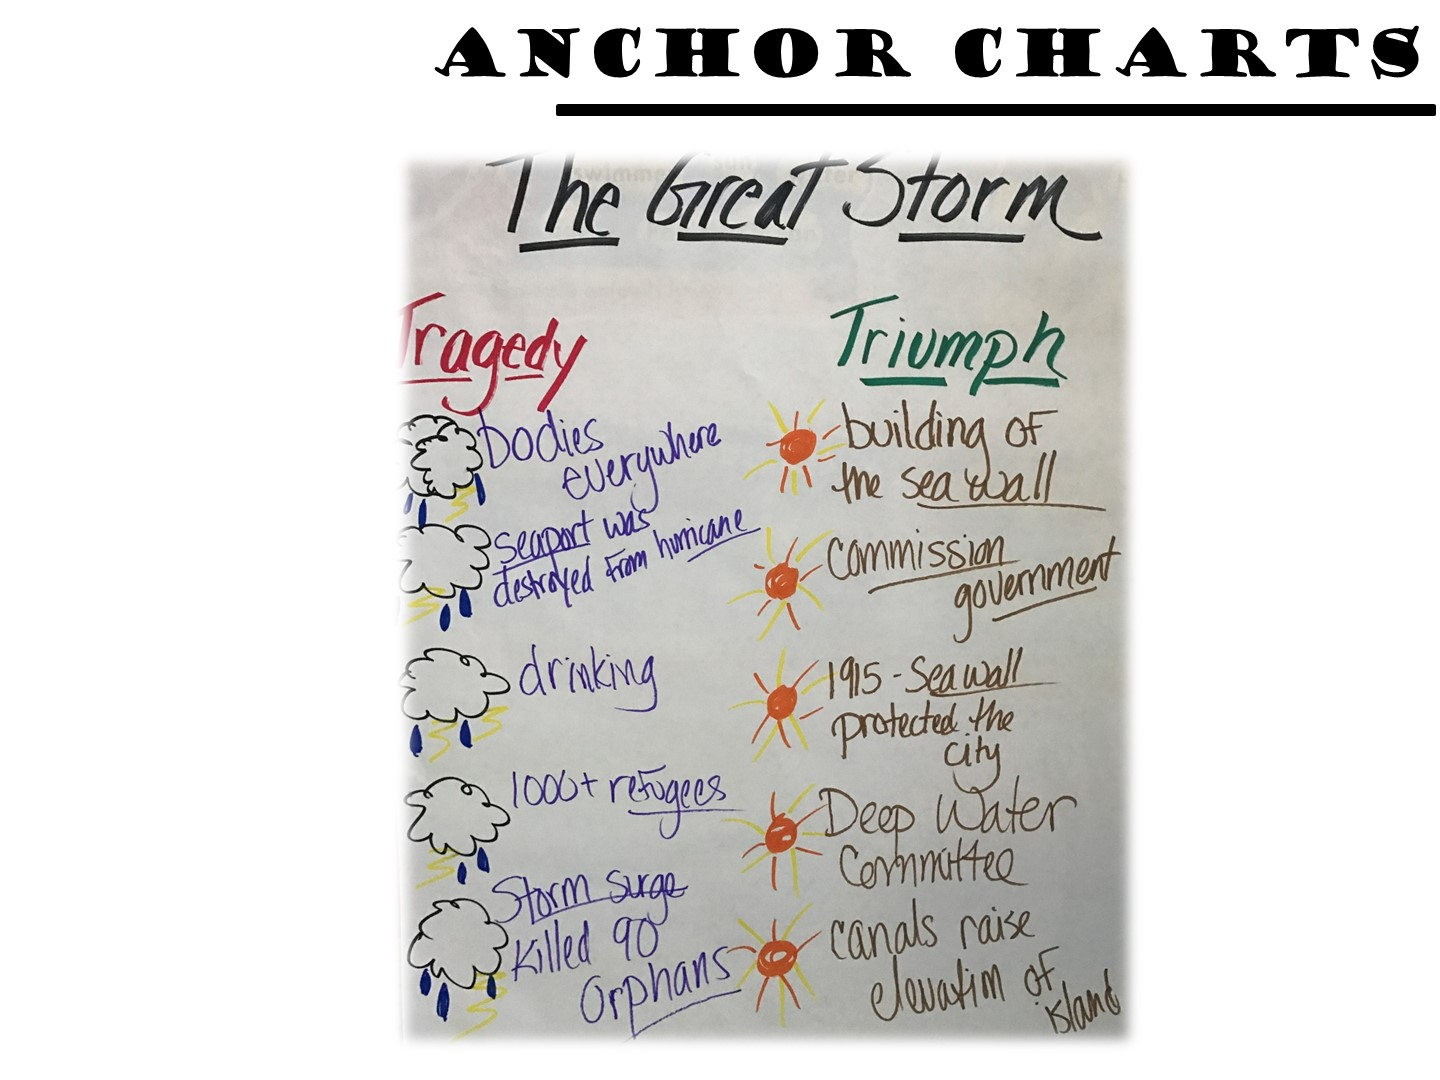 ANCHOR CHARTS
The Great Storm
Tragedy
bodies
everywhere
seaport was
destroyed from hurricane
drinking
1000+ refugees
Storm surge
killed 90
orphans
Triumph
building of
the sea wall
Commission
government
1915 - Sea wall
protected the
city
Deep Water
Committee
canals raise
elevation of
island